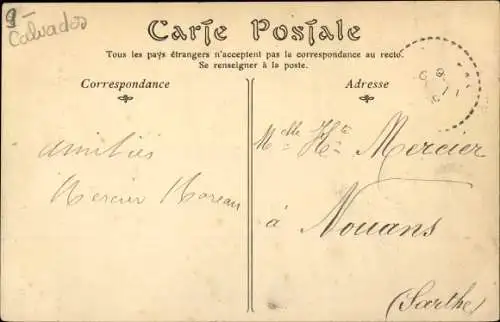 9-
Calvados
Carte Postale
Tous les pays étrangers n'acceptent pas la correspondance au recto.
Se renseigner à la poste.
Correspondance
Adresse
Amitiés
Mercier Moreau
Melle Hte Mercier
à Nouans
(Sarthe)